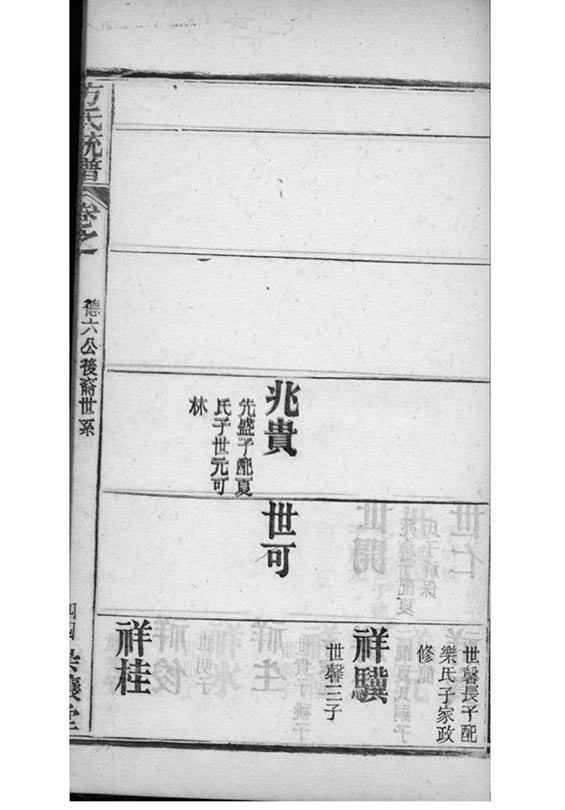 兆貴
先盛子配夏
氏子世元可
林
世可
世馨長子配
樂氏子家政
修
祥驥
世馨三子
祥桂
方氏統譜
卷之一
德六公後裔世系
四四